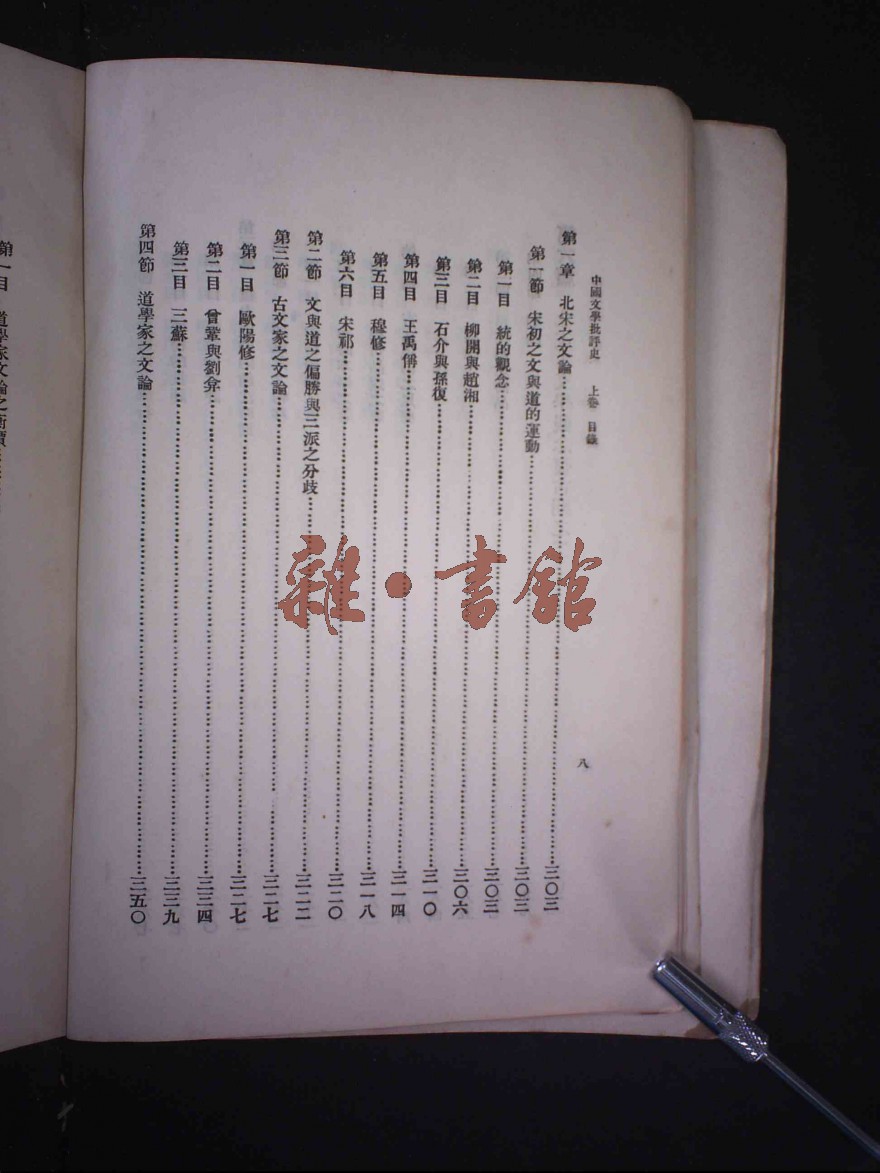 中國文學批評史　上卷　目錄
八
第一章　北宋之文論……三〇三
第一節　宋初之文與道的運動……三〇三
第一目　統的觀念……三〇三
第二目　柳開與趙湘……三〇六
第三目　石介與孫復……三一〇
第四目　王禹偁……三一四
第五目　穆修……三一八
第六目　宋祁……三二〇
第二節　文與道之偏勝與三派之分歧……三二二
第三節　古文家之文論……三二七
第一目　歐陽修……三二七
第二目　曾鞏與劉弇……三三四
第三目　三蘇……三三九
第四節　道學家之文論……三五〇
第一目　道學家文論之衡價……
雜·書館